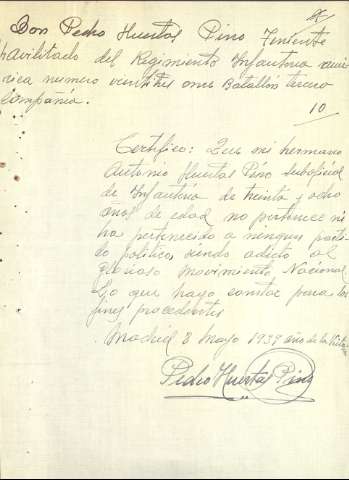 Don Pedro Huertas Pino Teniente
havilitado del Regimiento Infanteria
numero veintitres once Batallón tercera
Compañia.
10
Certifico: Que mi hermano
Antonio Huertas Pino suboficial
de Infantería de treinta y ocho
años de edad no pertenece ni
ha pertenecido a nengun parti-
do politico siendo adicto al
glorioso Movimiento Nacional
Lo que hago constar para los
fines procedentes
Madrid 8 Mayo 1939 año de la Victoria
Pedro Huertas Pino